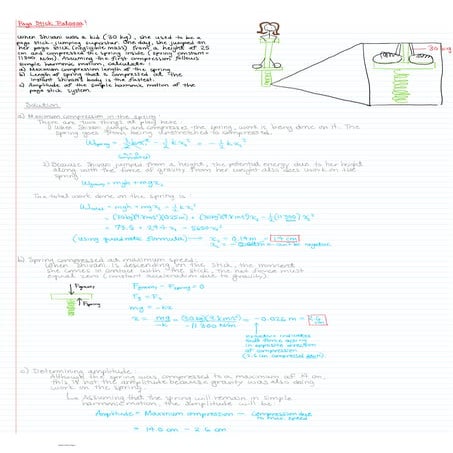 Pogo Stick Released!
When Shivani was a kid (30 kg), she used to be a
pogo stick jumping superstar. One day, she jumped on
her pogo stick (negligible mass) from a height of 25
cm and compressed the spring inside (spring constant=
11300 N/m). Assuming the first compression follows
simple harmonic motion, calculate:
a) Maximum compression length of the spring
b) Length of spring that is compressed at the
instant Shivani's body is the fastest.
c) Amplitude of the simple harmonic motion of the
pogo stick system.
30 kg
Solution
a) Maximum compression in the spring:
There are two things at play here:
1) When Shivani jumps and compresses the spring, work is being done on it. The
spring goes from being unstretched to compressed.
Wspring = ½kx₁² - ½kx₂² = -½kx₂²
2) Because Shivani jumped from a height, the potential energy due to her height
along with the force of gravity from her weight also does work on the
spring
Wgravity = mgh + mgx₂
The total work done on the spring is:
Wtotal = mgh + mgx₂ - ½kx₂²
= (30kg)(9.8m/s²)(0.25m) + (30kg)(9.8m/s²)x₂ - ½(11300)x₂²
= 73.5 + 294x₂ - 5650x₂²
(using quadratic formula) → x₂ = 0.14m = 14 cm
b) Spring compressed at maximum speed:
When Shivani is descending on the stick, the moment
she comes in contact with the stick, the net force must
equal zero (constant acceleration due to gravity).
Fgravity
Fspring
Fgravity - Fspring = 0
Fg = Fs
mg = -kx
x = mg/-k = (30kg)(9.8m/s²)/-11300 N/m = -0.026 m = 2.6 cm
negative indicates
that force spring
in opposite direction
of compression
(2.6 cm compressed again)
c) Determining amplitude:
Although the spring was compressed to a maximum of 14 cm,
this is not the amplitude because gravity was also doing
work on the spring.
↳ Assuming that the spring will remain in simple
harmonic motion, the amplitude will be:
Amplitude = Maximum compression - Compression due to max speed
= 14.0 cm - 2.6 cm